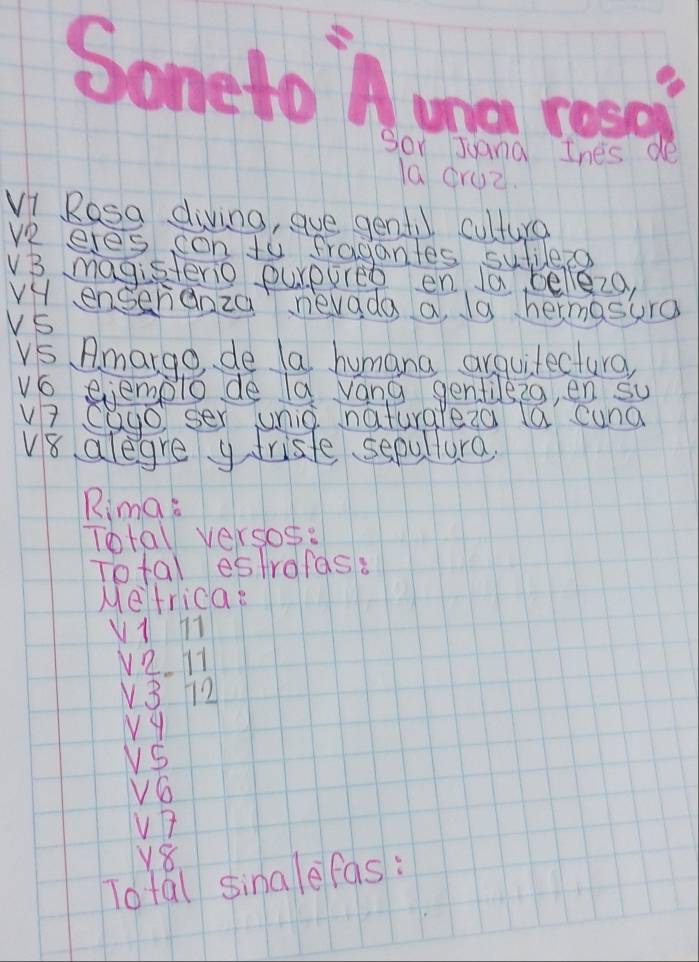 Soneto "A una rosa"
Sor Juana Inés de
la cruz.
V1 Rosa divina, que gentil cultura
V2 eres con tu fragantes sutileza
V3 magisterio purpureo en la belleza,
V4 enseñanza nevada a la hermosura
V5
V5 Amargo de la humana arquitectura,
V6 ejemplo de la vana gentileza, en su
V7 cuyo ser unio naturaleza la cuna
V8 alegre y triste sepultura.
Rima:
Total versos:
Total estrofas:
Métrica:
V1 11
V2-11
V3 12
V4
V5
V6
V7
V8
Total sinalefas: